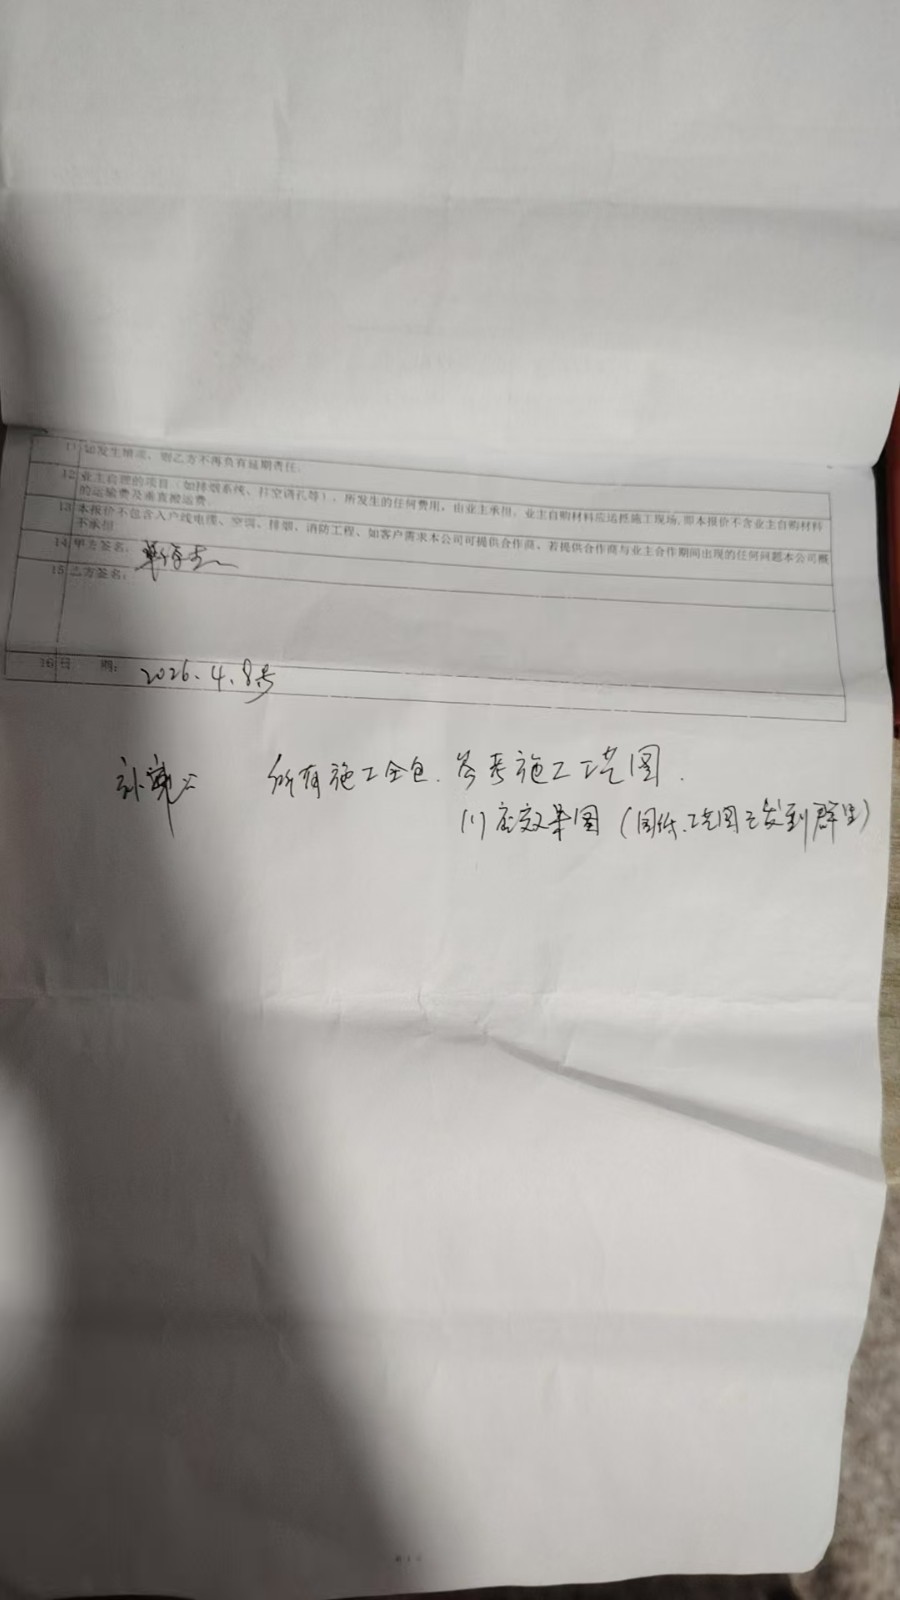 11 如发生增减，则乙方不再负有延期责任。
12 业主自理的项目（如排烟系统、打空调孔等），所发生的任何费用，由业主承担；业主自购材料应运抵施工现场,即本报价不含业主自购材料
的运输费及垂直搬运费
13 本报价不包含入户线电缆、空调、排烟、消防工程、如客户需求本公司可提供合作商、若提供合作商与业主合作期间出现的任何问题本公司概
不承担
14 甲方签名：
15 乙方签名：
16 日 期： 2026.4.8号
所有施工全包.参考施工工艺图.
效果图（图纸.工艺图已发到群里）